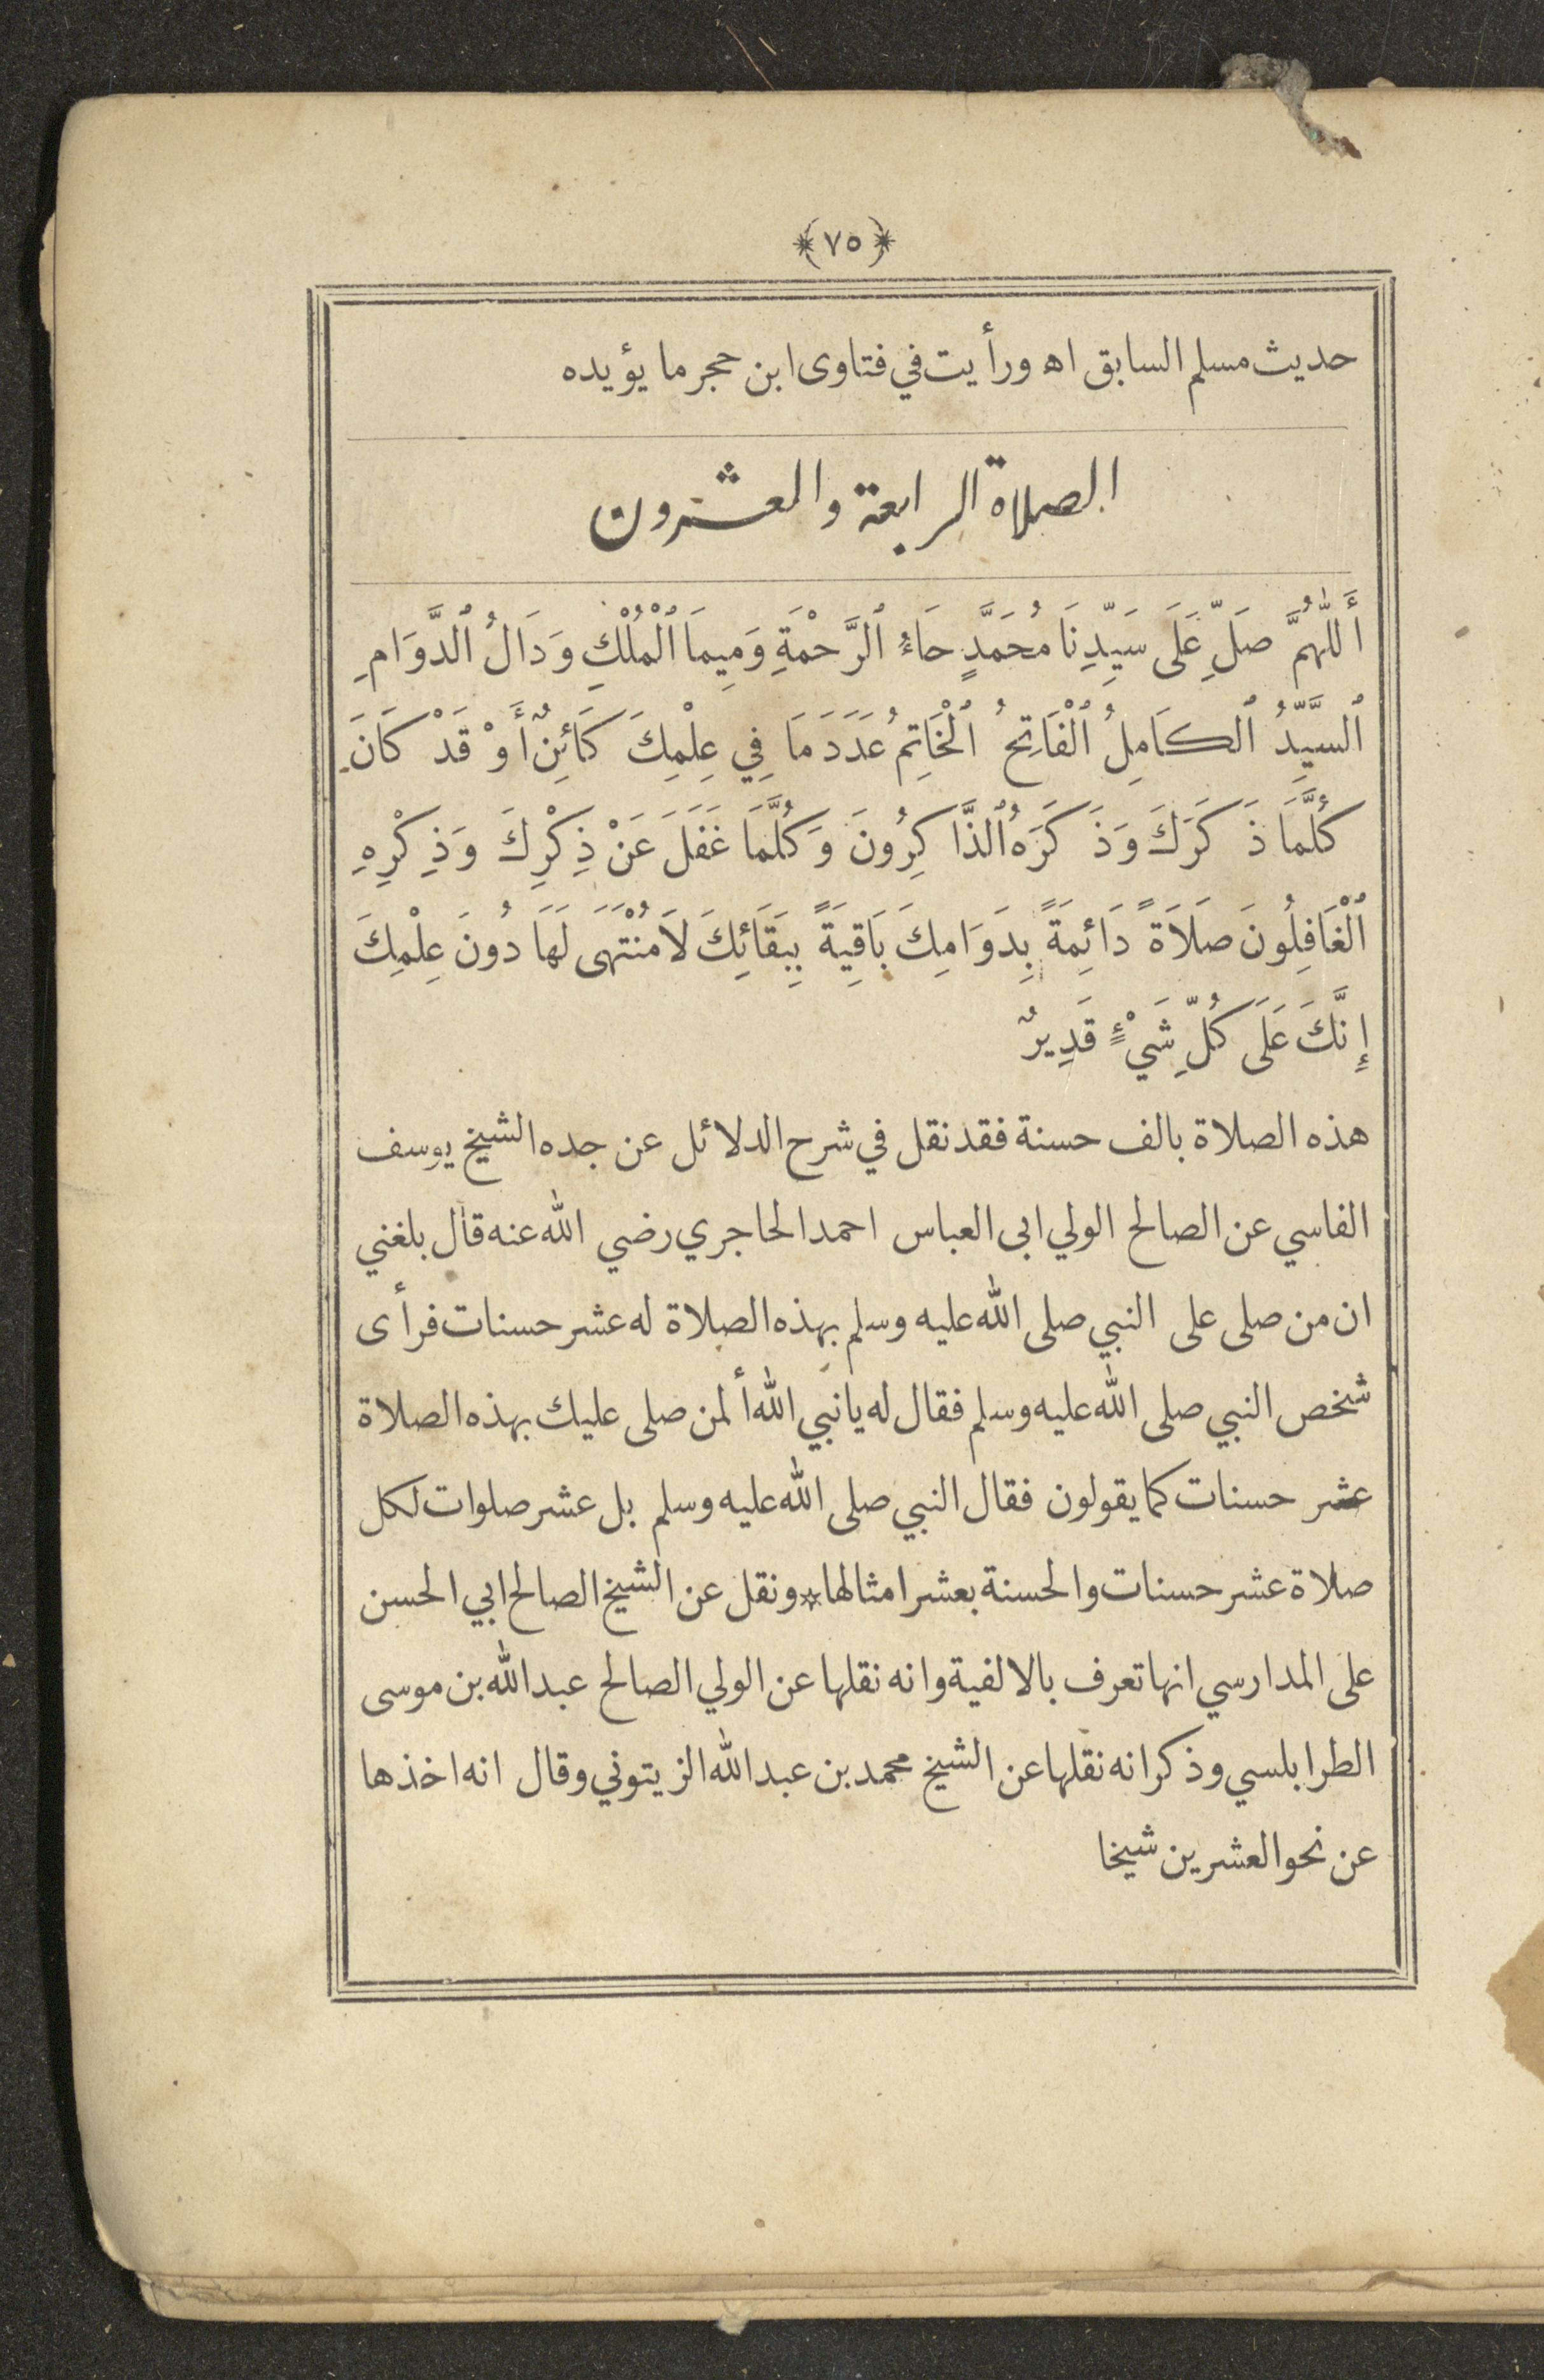 ﴿٧٥﴾
حديث مسلم السابق اه ورأيت في فتاوى ابن حجر ما يؤيده
الصلاة الرابعة والعشرون
أَللّٰهُمَّ صَلِّ عَلَى سَيِّدِنَا مُحَمَّدٍ حَاءُ ٱلرَّحْمَةِ وَمِيمَا ٱلْمُلْكِ وَدَالُ ٱلدَّوَامِ
ٱلسَّيِّدُ ٱلكَامِلُ ٱلْفَاتِحُ ٱلْخَاتِمُ عَدَدَ مَا فِي عِلْمِكَ كَائِنٌ أَوْ قَدْ كَانَ
كُلَّمَا ذَكَرَكَ وَذَكَرَهُ ٱلذَّاكِرُونَ وَكُلَّمَا غَفَلَ عَنْ ذِكْرِكَ وَذِكْرِهِ
ٱلْغَافِلُونَ صَلَاَةً دَائِمَةً بِدَوَامِكَ بَاقِيَةً بِبَقَائِكَ لَا مُنْتَهَى لَهَا دُونَ عِلْمِكَ
إِنَّكَ عَلَى كُلِّ شَيْءٍ قَدِيرٌ
هذه الصلاة بالف حسنة فقد نقل في شرح الدلائل عن جده الشيخ يوسف
الفاسي عن الصالح الولي ابى العباس احمد الحاجري رضي الله عنه قال بلغني
ان من صلى على النبي صلى الله عليه وسلم بهذه الصلاة له عشر حسنات فرأى
شخص النبي صلى الله عليه وسلم فقال له يا نبي الله ألمن صلى عليك بهذه الصلاة
عشر حسنات كما يقولون فقال النبي صلى الله عليه وسلم بل عشر صلوات لكل
صلاة عشر حسنات والحسنة بعشر امثالها * ونقل عن الشيخ الصالح ابي الحسن
على المدارسي انها تعرف بالالفية وانه نقلها عن الولي الصالح عبد الله بن موسى
الطرابلسي وذكر انه نقلها عن الشيخ محمد بن عبد الله الزيتوني وقال انه اخذها
عن نحو العشرين شيخا